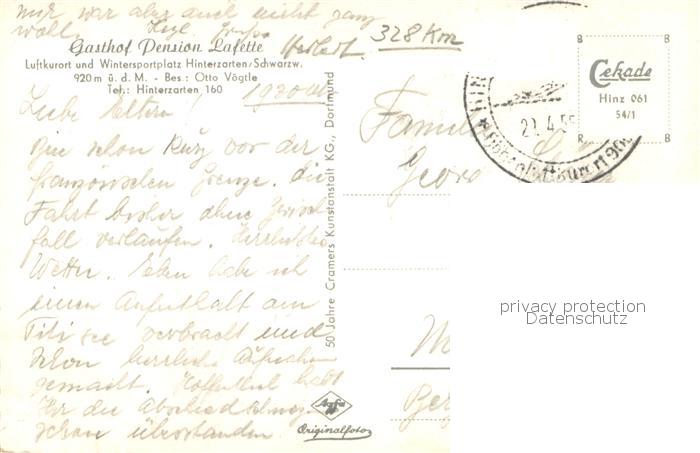 mir war aber auch nicht ganz
wohl. Herbert. 328 Km
Gasthof Pension Lafette
Luftkurort und Wintersportplatz Hinterzarten/Schwarzw.
920 m ü. d. M. - Bes.: Otto Vögtle
Tel.: Hinterzarten 160
1920
Liebe Eltern!
Bin schon kurz vor der
französischen Grenze. Die
Fahrt bisher ohne Zwisch
fall verlaufen. Herrlichstes
Wetter. Eben habe ich
einen Aufenthalt am
Titisee verbracht und
schon herrliche Aufnahmen
gemacht. Hoffentlich habt
Ihr die Abschiedsschmerzen
schon überstanden.
50 Jahre Cramers Kunstanstalt KG., Dortmund
Agfa
Originalfoto
B B
Cekade
Hinz 061
54/1
R B
HIN
21.4.55
Höhenluftkurort 900
Familie
Georg
M
privacy protection
Datenschutz